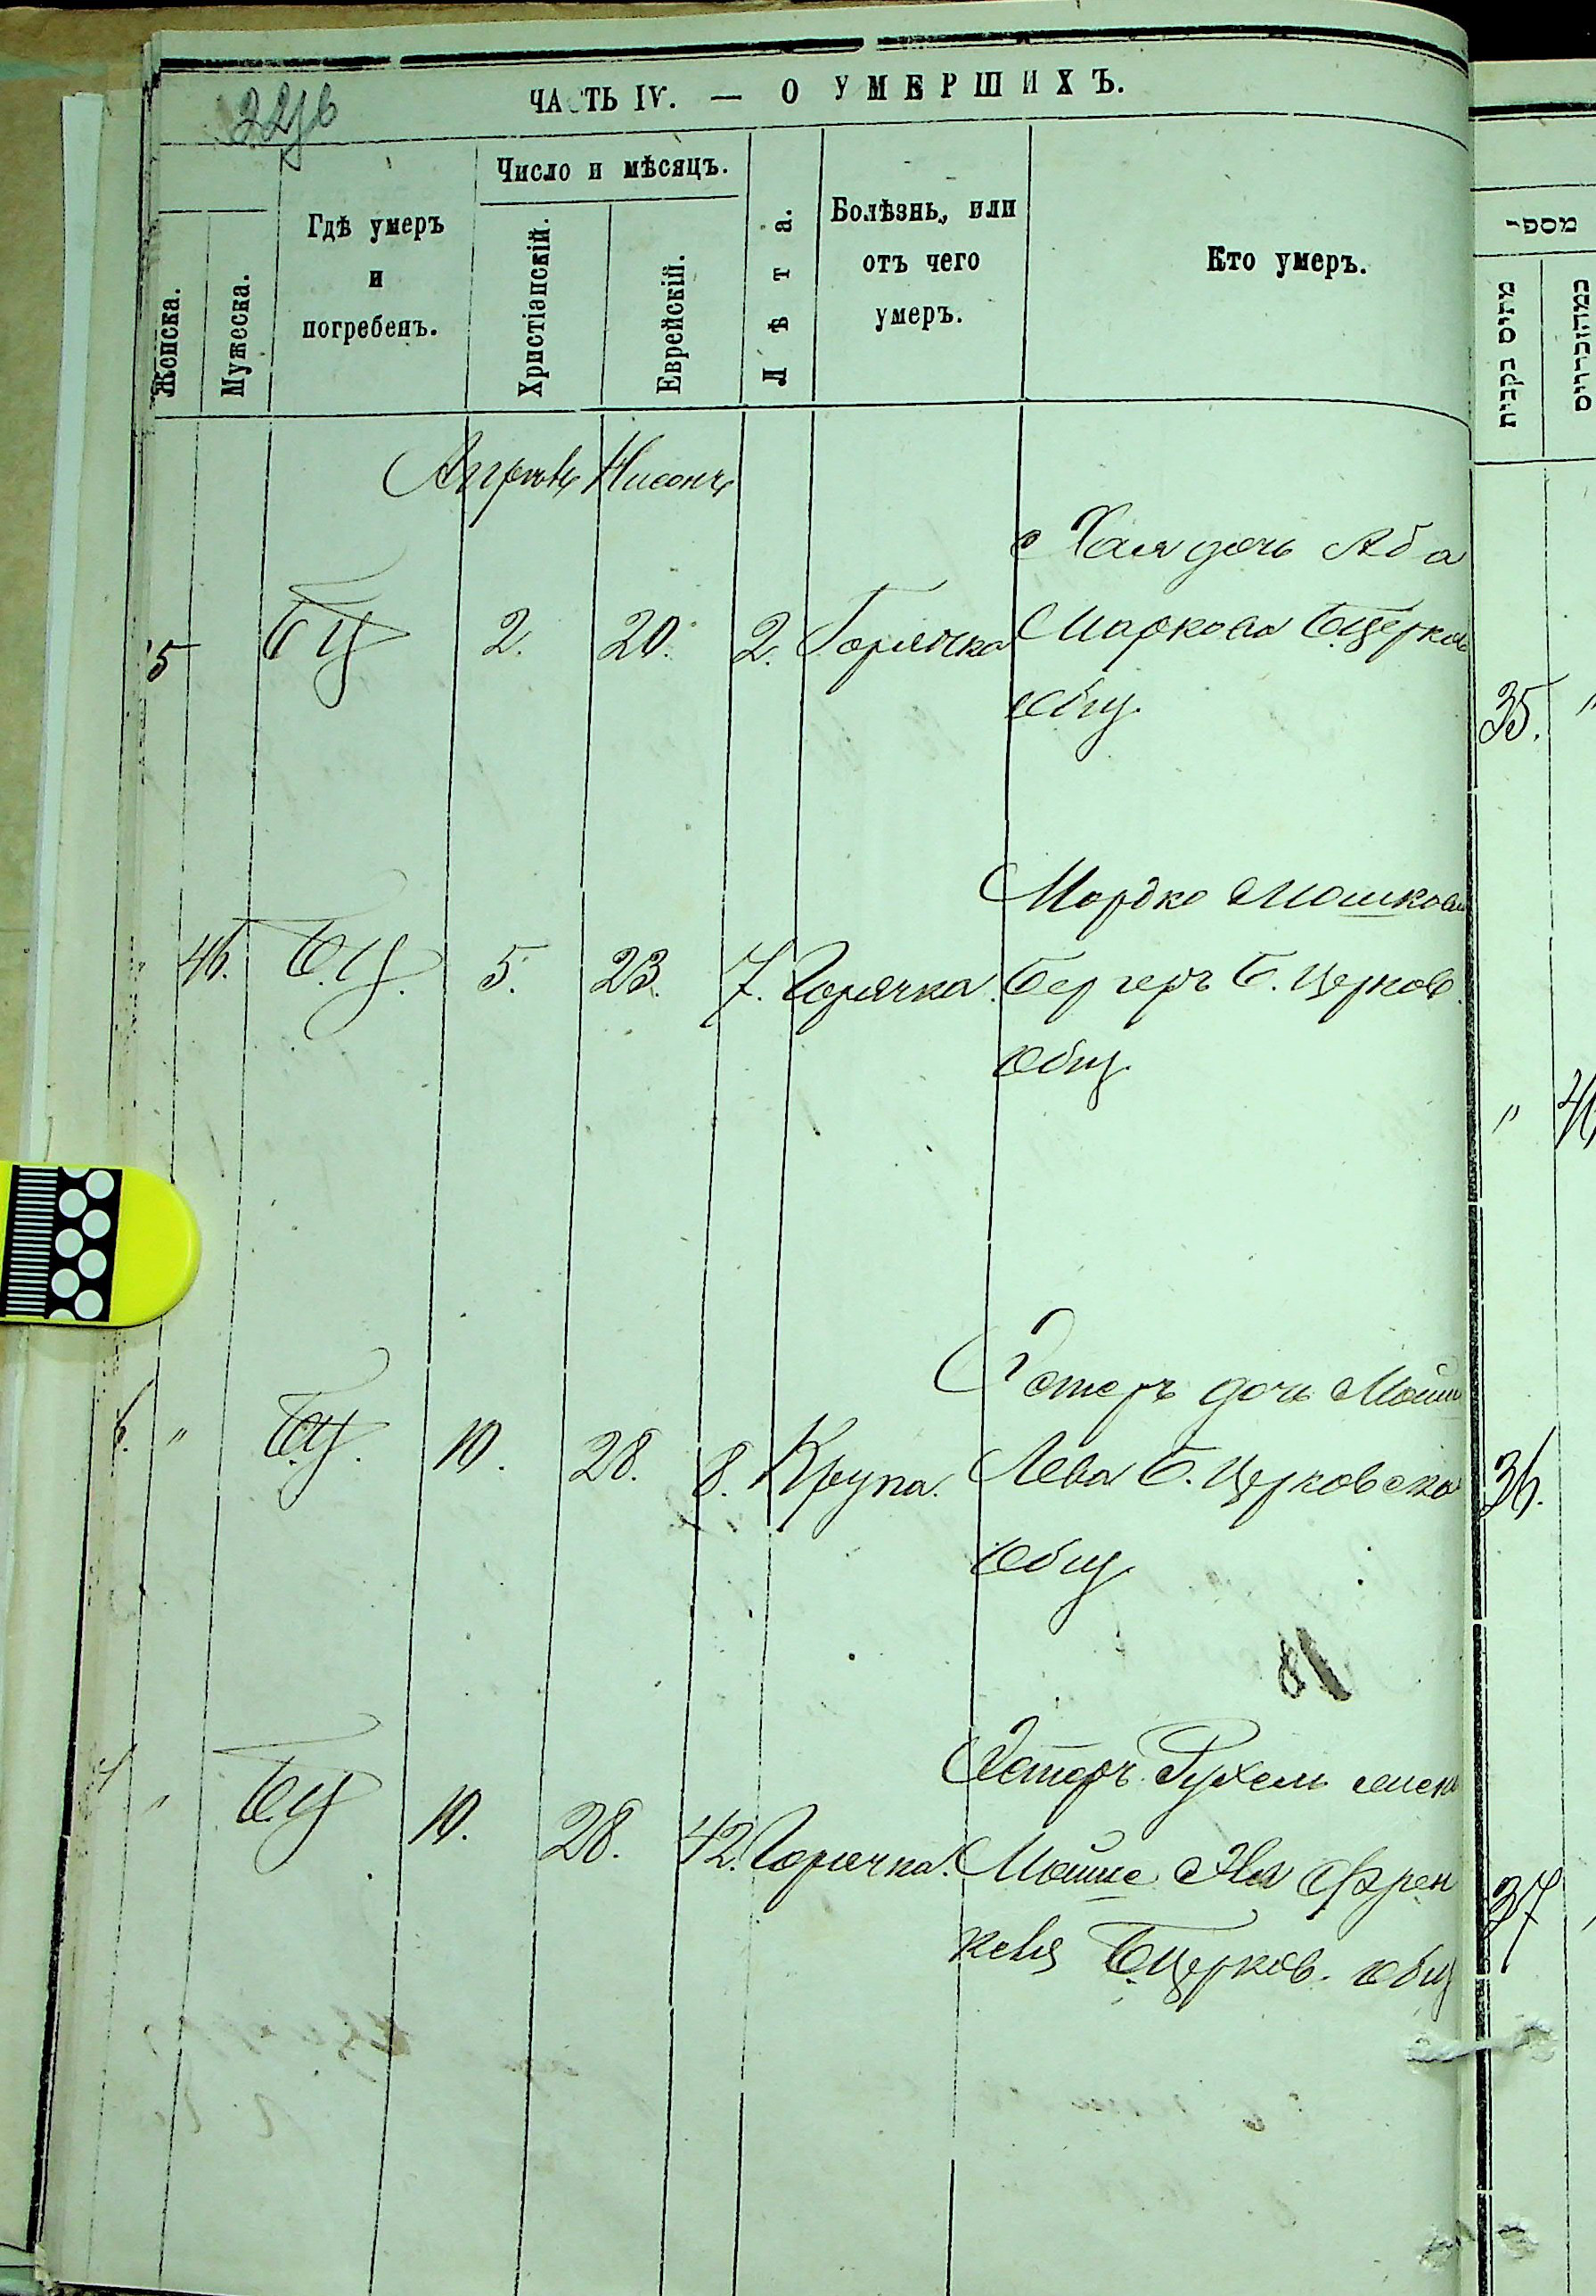 ЧАСТЬ IV. — О УМЕРШИХЪ.
Женска.
Мужеска.
Гдѣ умеръ
и
погребенъ.
Число и мѣсяцъ.
Христіанскій.
Еврейскій.
Лѣта.
Болѣзнь, или
отъ чего
умеръ.
Кто умеръ.
מספר
Апрѣль Нисонъ
Хая дочь Аба
5 БЦ 2. 20. 2. Горячка Маркова Б.Церков
Общ.
35. "
Мордко Мошков
46. Б.Ц. 5. 23. 7. Горячка. Бергеръ Б. Церков.
Общ.
"
Эстеръ дочь Мойш
6. " Б.Ц. 10. 28. 8. Крупа. Лева Б. Церковско
Общ.
36.
Эстеръ Рухель жена
" Б.Ц 10. 28. 42. Горячка. Мойше Френ
келя Б.Церков. общ
37